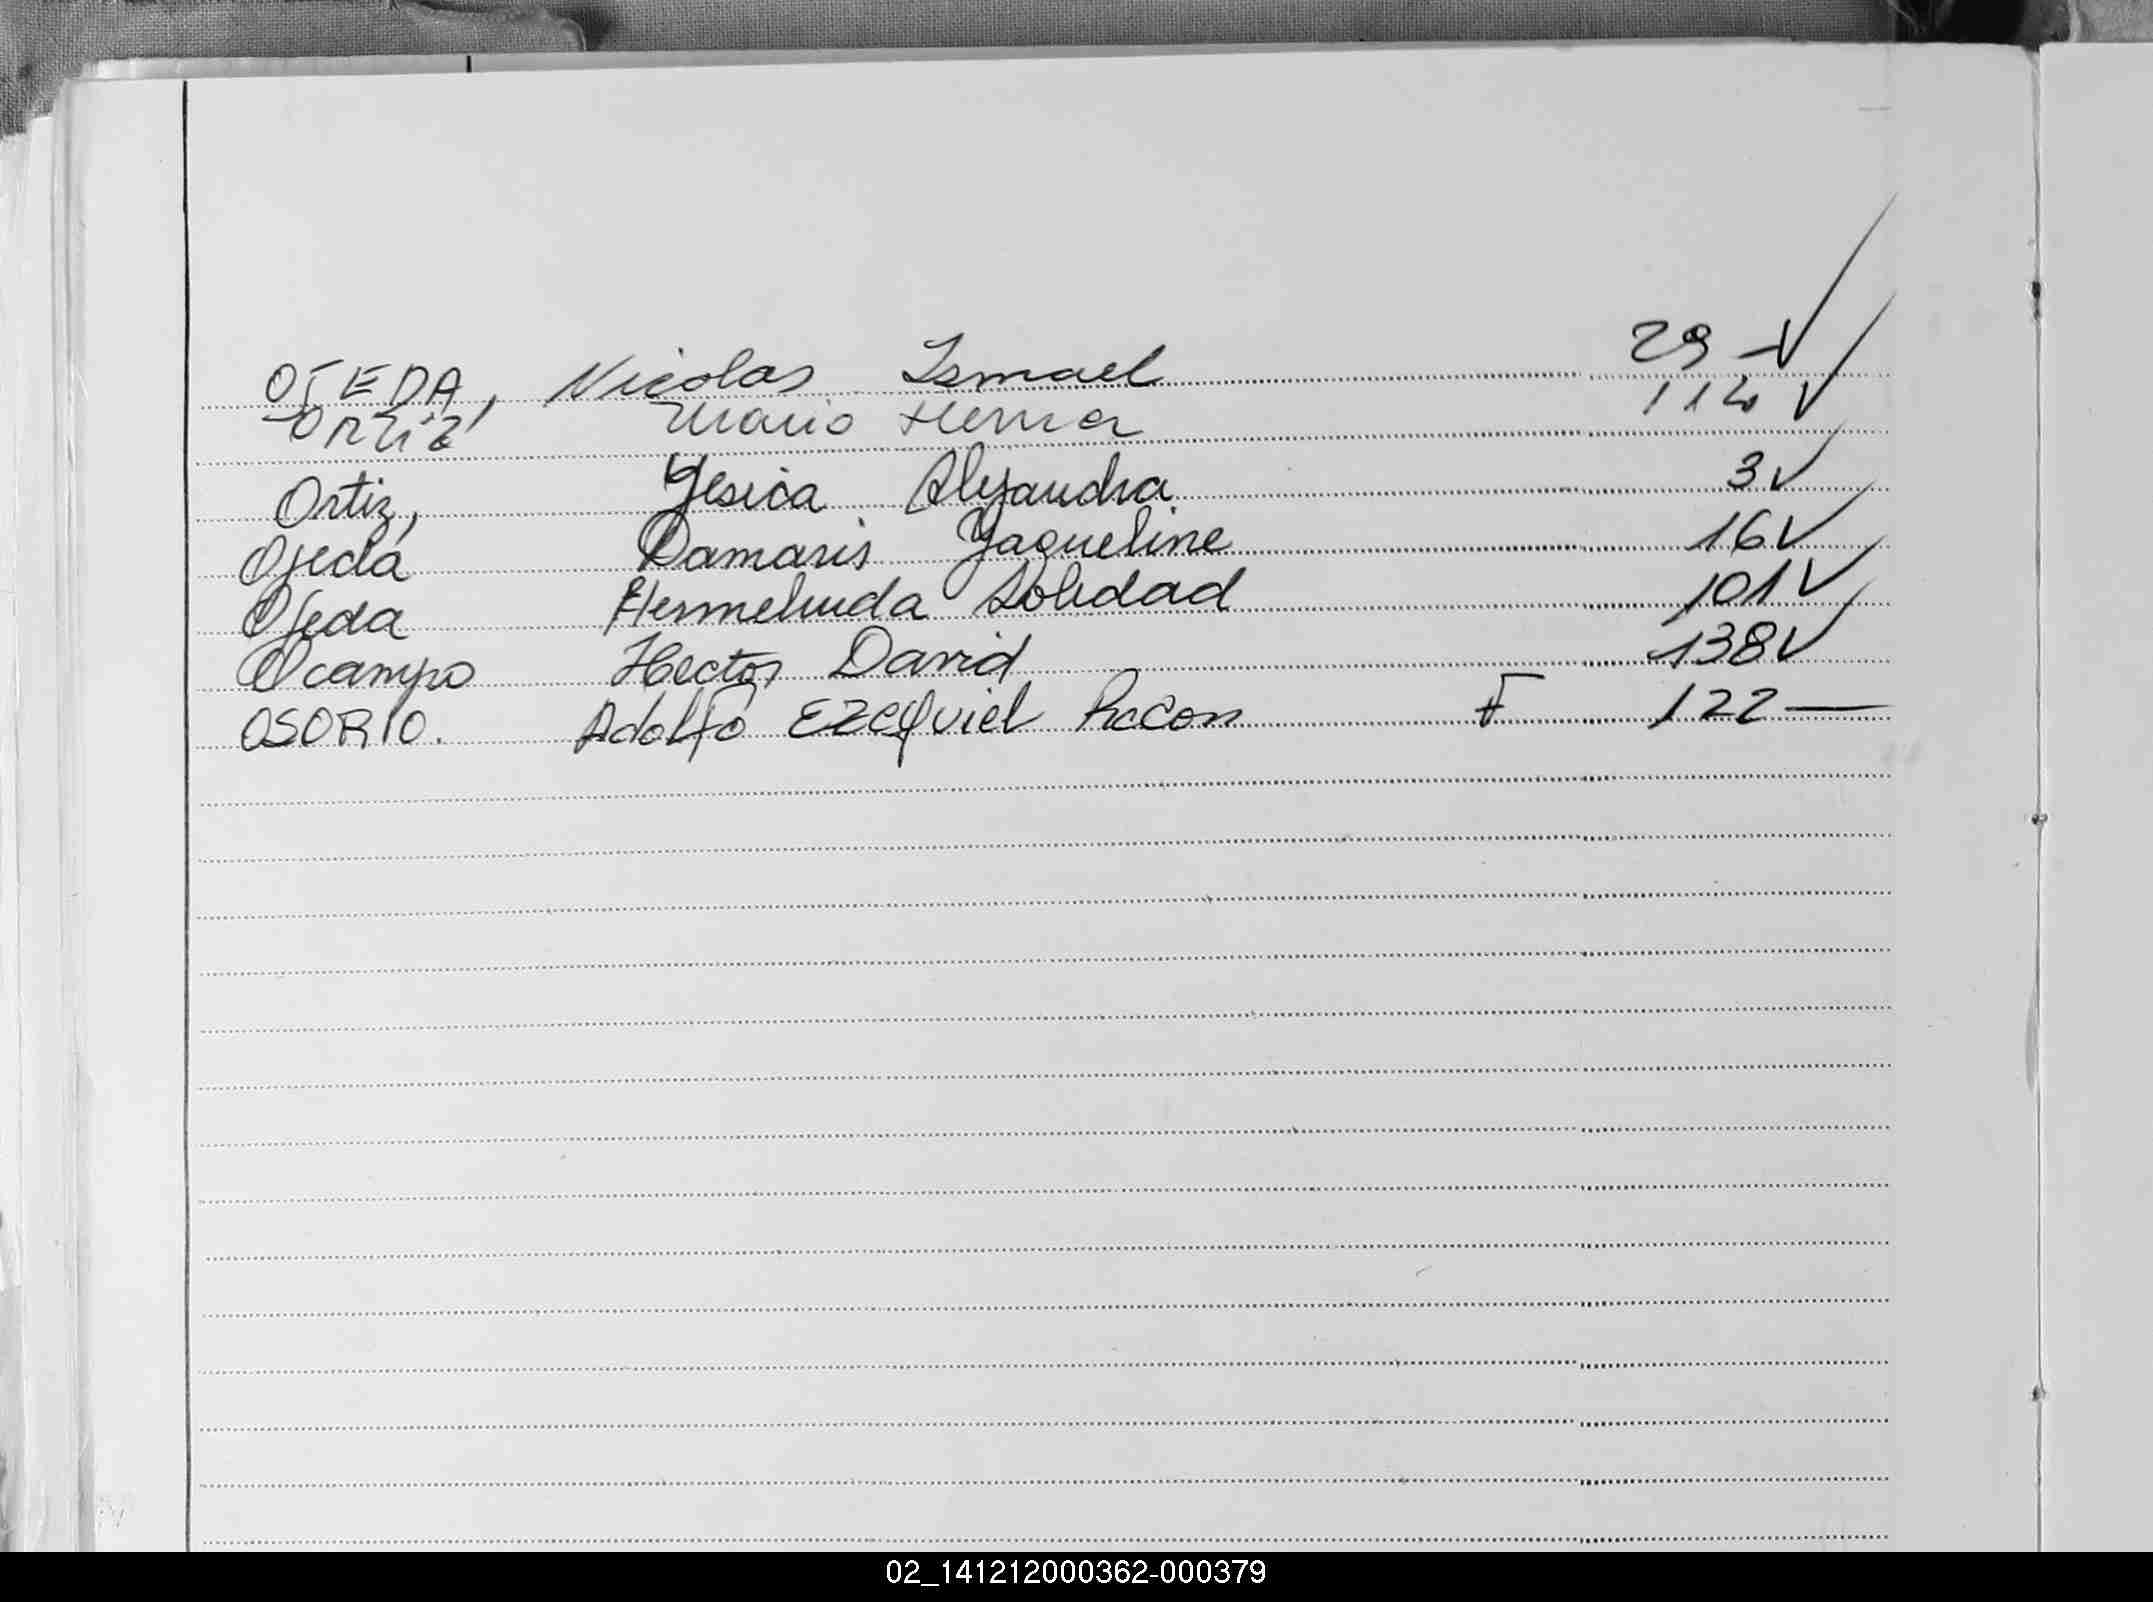 OJEDA, Nicolas Ismael 29 - √
ORtiz Mario Hernan 114 √
Ortiz, Yesica Alejandra 3 √
Ojeda Damaris Yaqueline 16 √
Ojeda Hermelinda Soledad 101 √
Ocampo Hector David 138 √
OSORIO. Adolfo EZEQUIEL F 122 —
02_141212000362-000379